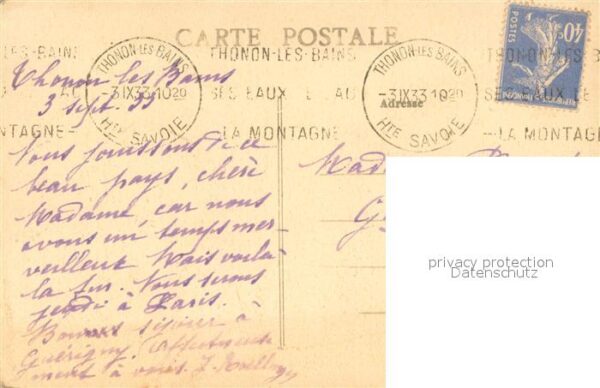 CARTE POSTALE
THONON-LES-BAINS
SES EAUX LE LAC
LA MONTAGNE
THONON-LES BAINS
-3 IX 33 10 20
HTE SAVOIE
THONON-LES BAINS
-3 IX 33 10 20
HTE SAVOIE
POSTES
40c
Adresse
Thonon les Bains
3 sept. 33
Nous jouissons de ce
beau pays, chère
Madame, car nous
avons un temps mer-
veilleux Mais voilà
la fin. Nous serons
jeudi à Paris.
Bonnes séjour à
Guérigny. Affectueuse
ment à vous. J.
privacy protection
Datenschutz